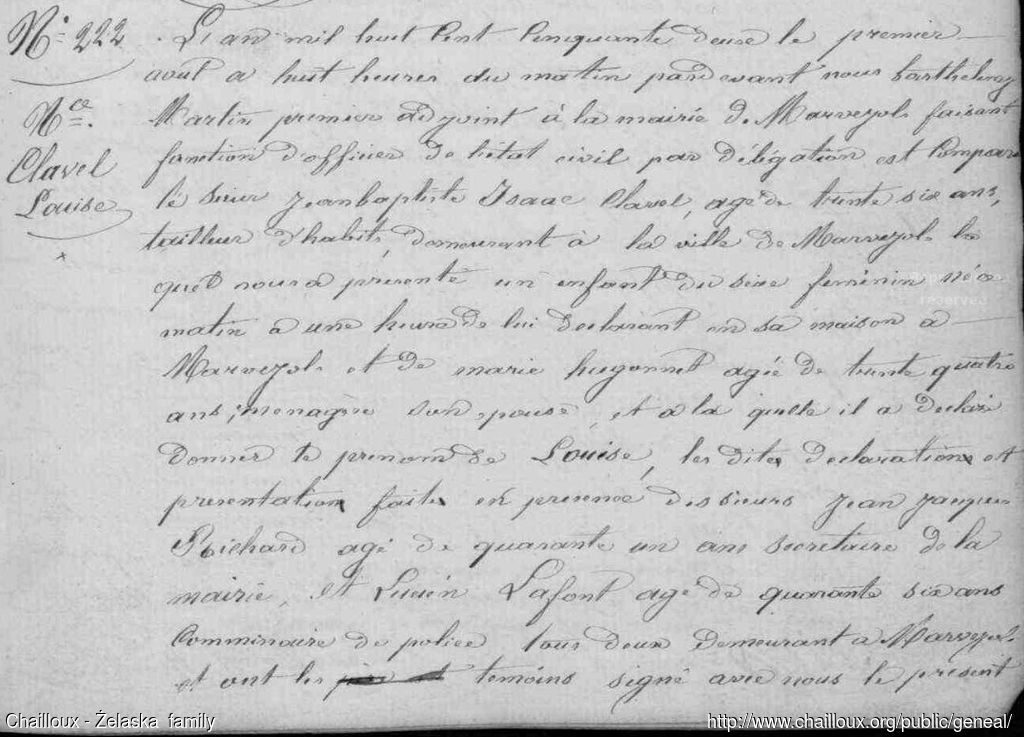 N° 222
Nce.
Clavel
Louise
L'an mil huit Cent Cinquante deux le premier
aout a huit heures du matin pardevant nous barthelemy
Martin premier adjoint à la mairie de Marvejols faisant
fonction d'officier de l'état civil par délégation est Comparu
le sieur Jean baptiste Isaac Clavel, agé de trente six ans,
tailleur d'habits, demeurant à la ville de Marvejols le
quel nous a présenté un enfant du sexe feminin née
matin a une heure de lui declarant en sa maison a
Marvejols et de marie hugonnet agée de trente quatre
ans, menagère son epouse, et a la quelle il a declaré
donner le prenom de Louise, les dites declaration et
presentation faites en presence des sieurs Jean Jacques
Richard agé de quarante un ans secretaire de la
mairie, et Lucien Lafont agé de quarante six ans
Commissaire de police tous deux demeurant a Marvejols
et ont les temoins signé avec nous le présent
reserved
Chailloux - Żelaska family
http://www.chailloux.org/public/geneal/